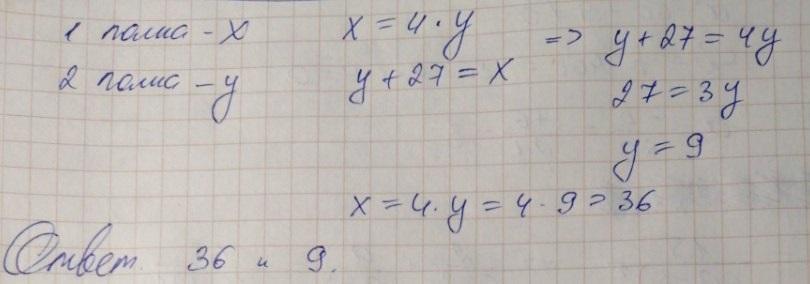 1 полка - x x = 4 · y => y + 27 = 4y
2 полка - y y + 27 = x
27 = 3y
y = 9
x = 4 · y = 4 · 9 = 36
Ответ. 36 и 9.